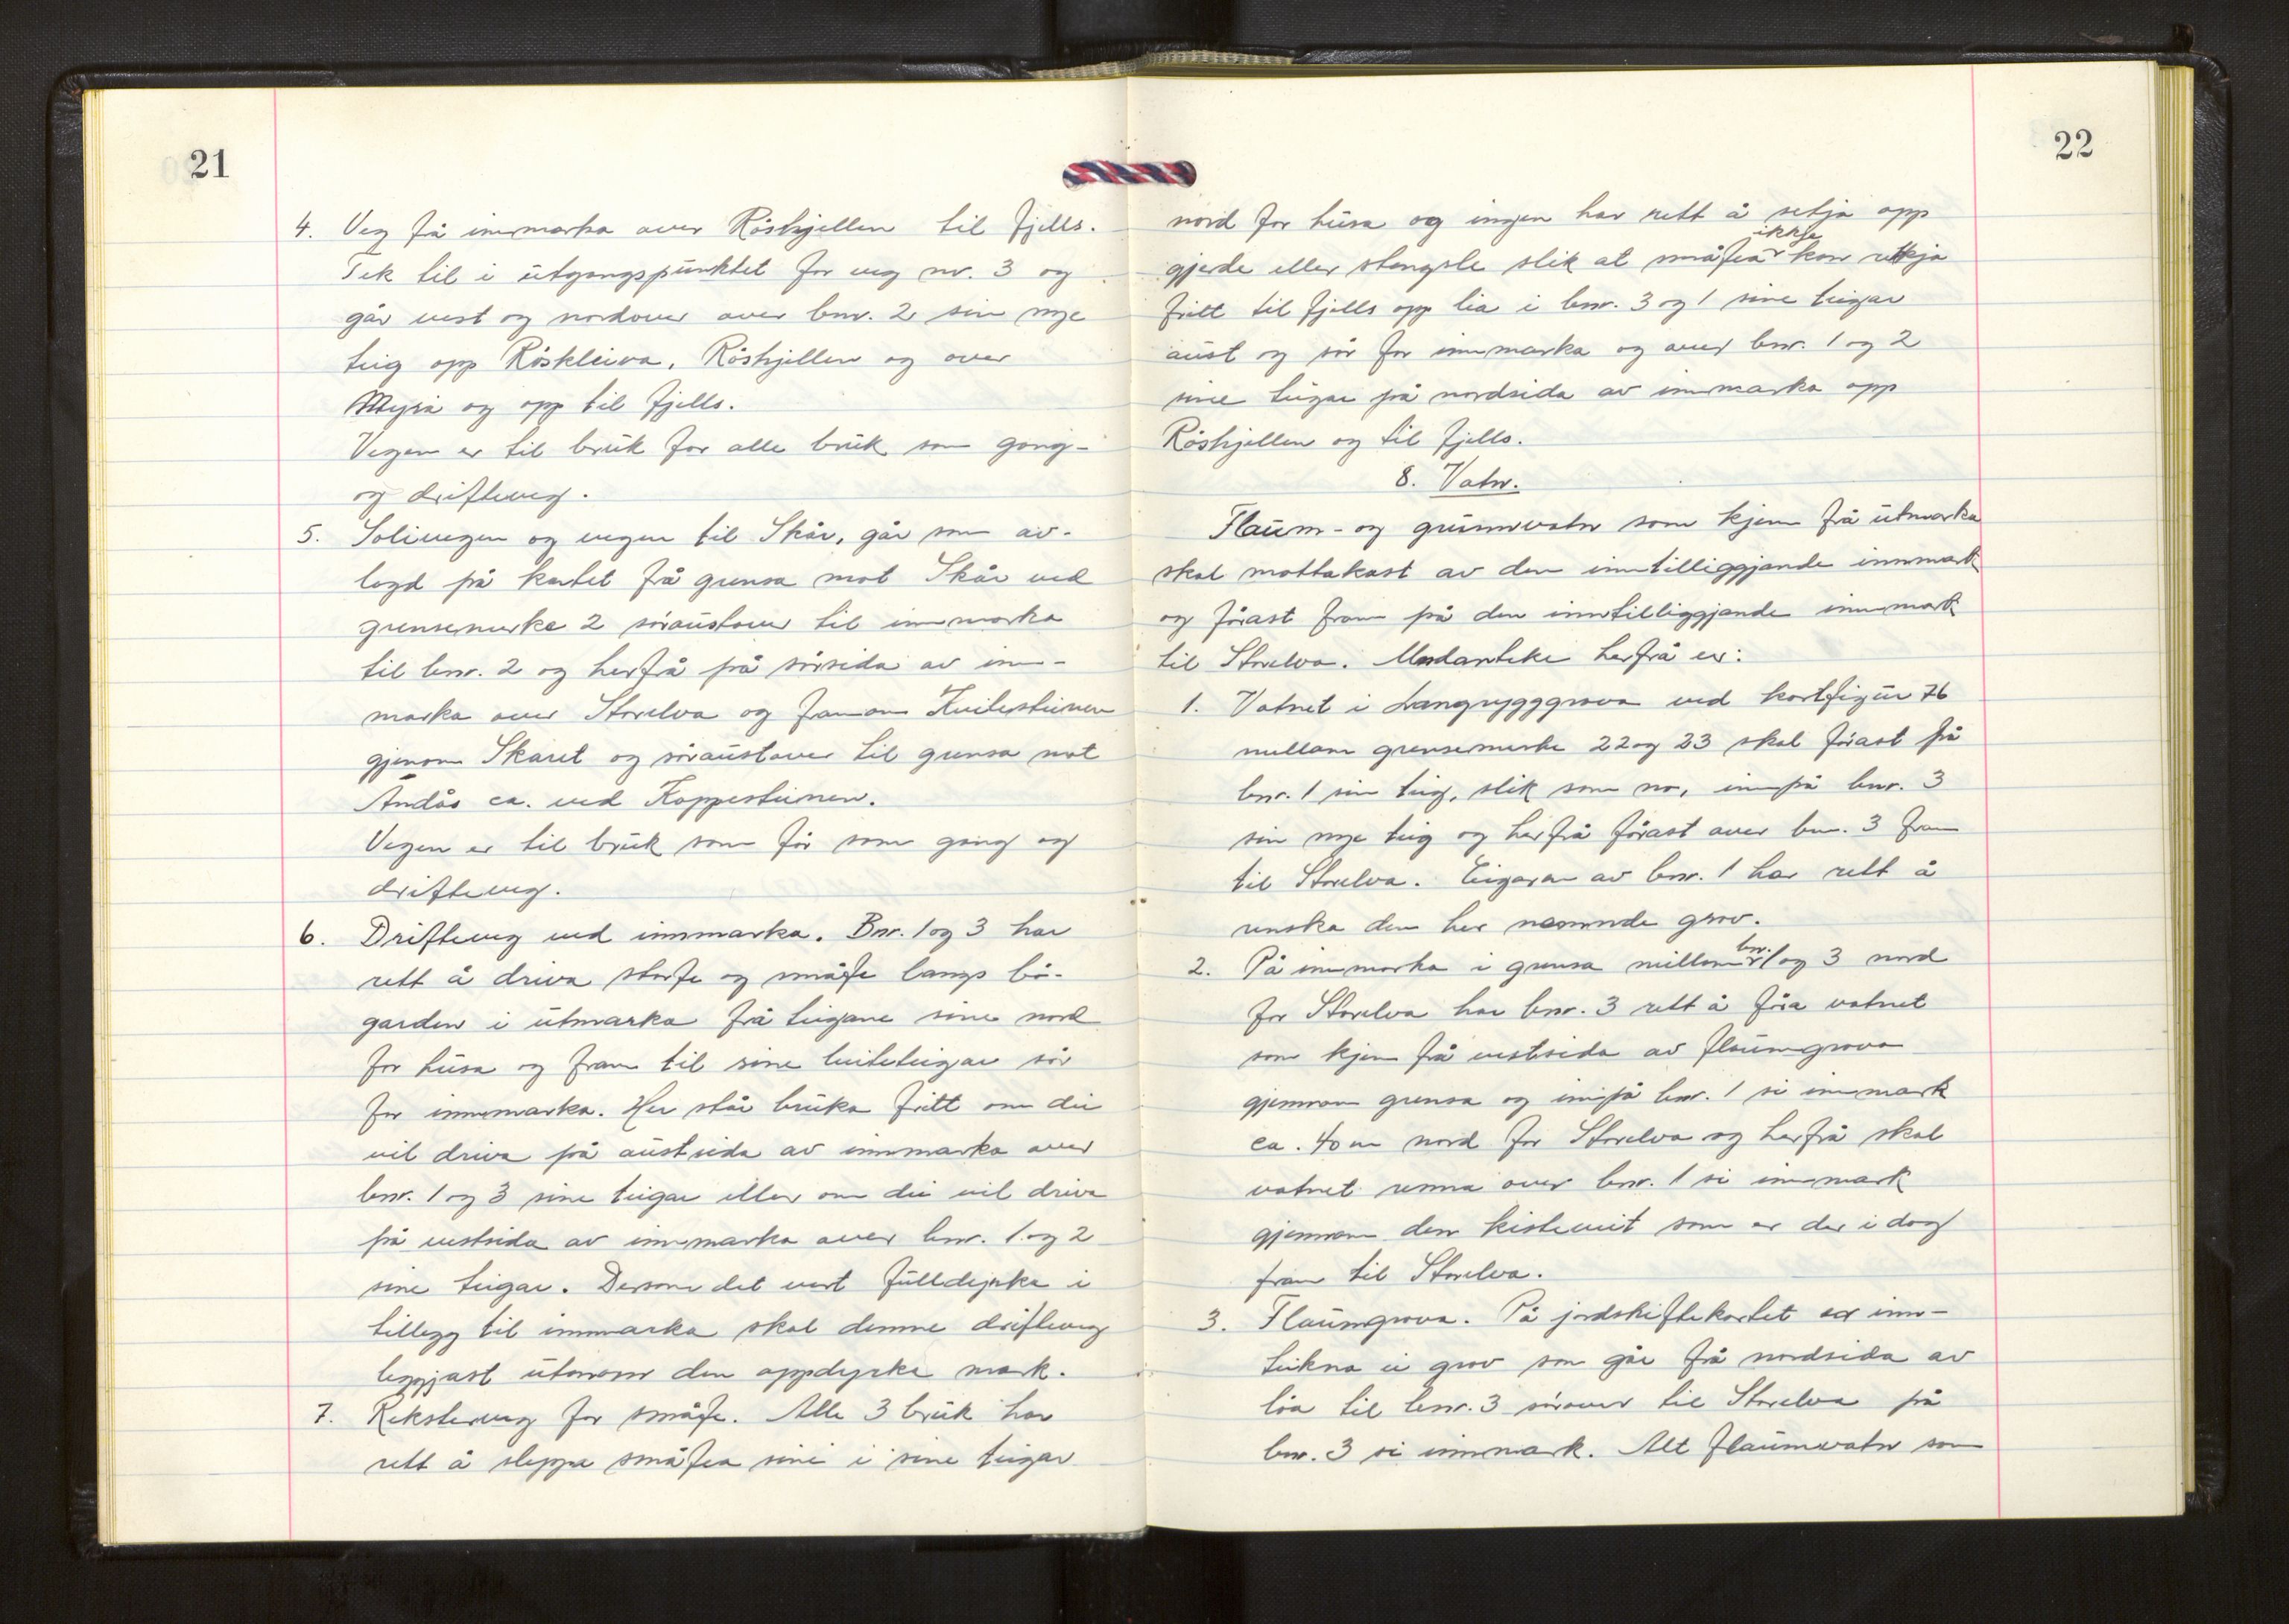 21
4. Veg frå innmarka over Röskjellen til fjells.
Tek til i utgangspunktet for veg nr. 3 og
går vest og nordover over bnr. 2 sin nye
teig opp Röskleiva, Röskjellen og over
Myra og opp til fjells.
Vegen er til bruk for alle bruk som gang-
og driftsveg.
5. Solivegen og vegen til Skår, går som av-
lagd på kartet frå grensa mot Skår ved
grensemerke 2 söraustover til innmarka
til bnr. 2 og herfrå på sörsida av inn-
marka over Storelva og framom Kvilesteinen
gjenom Skaret og söraustover til grensa mot
Andås ca. ved Koppesteinen.
Vegen er til bruk som för som gang og
drifteveg.
6. Drifteveg ved innmarka. Bnr. 1 og 3 har
rett å driva storfe og småfe langs bö-
garden i utmarka frå teigane sine nord
for husa og fram til sine beiteteigar sör
for innmarka. Her står bruka fritt om dei
vil driva på austsida av innmarka over
bnr. 1 og 3 sine teigar eller om dei vil driva
på vestsida av innmarka over bnr. 1 og 2
sine teigar. Dersom det vert fulldyrka i
tillegg til innmarka skal denne drifteveg
leggjast utanom den oppdyrka mark.
7. Reksterveg for småfe. Alle 3 bruk har
rett å sleppa småfea sine i sine teigar
22
nord for husa og ingen har rett å setja opp
gjerde eller stengsle slik at småfea ikkje kan rekja
fritt til fjells opp lia i bnr. 3 og 1 sine teigar
aust og sör for innmarka og over bnr. 1 og 2
sine teigar på nordsida av innmarka opp
Röskjellen og til fjells.
8. Vatn.
Flaum- og grunnvatn som kjem frå utmarka
skal mottakast av den inntilliggjande innmark
og förast fram på den inntilliggjande innmark
til Storelva. Undantake herfrå er:
1. Vatnet i Langrygggrova ved kartfigur 76
mellom grensemerke 22 og 23 skal förast på
bnr. 1 sin teig, slik som no, inn på bnr. 3
sin nye teig og herfrå förast over bnr. 3 fram
til Storelva. Eigaren av bnr. 1 har rett å
renska den her nemnde grov.
2. På innmarka i grensa millom bnr. 1 og 3 nord
for Storelva har bnr. 3 rett å föra vatnet
som kjem frå vestsida av flaumgrova
gjennom grensa og inn på bnr. 1 si innmark
ca. 40 m nord for Storelva og herfrå skal
vatnet renna over bnr. 1 si innmark
gjennom den kisteveit som er der i dag
fram til Storelva.
3. Flaumgrova. På jordskiftekartet er inn-
teikna ei grov som går frå nordsida av
löa til bnr. 3 sörover til Storelva på
bnr. 3 si innmark. Alt flaumvatn som